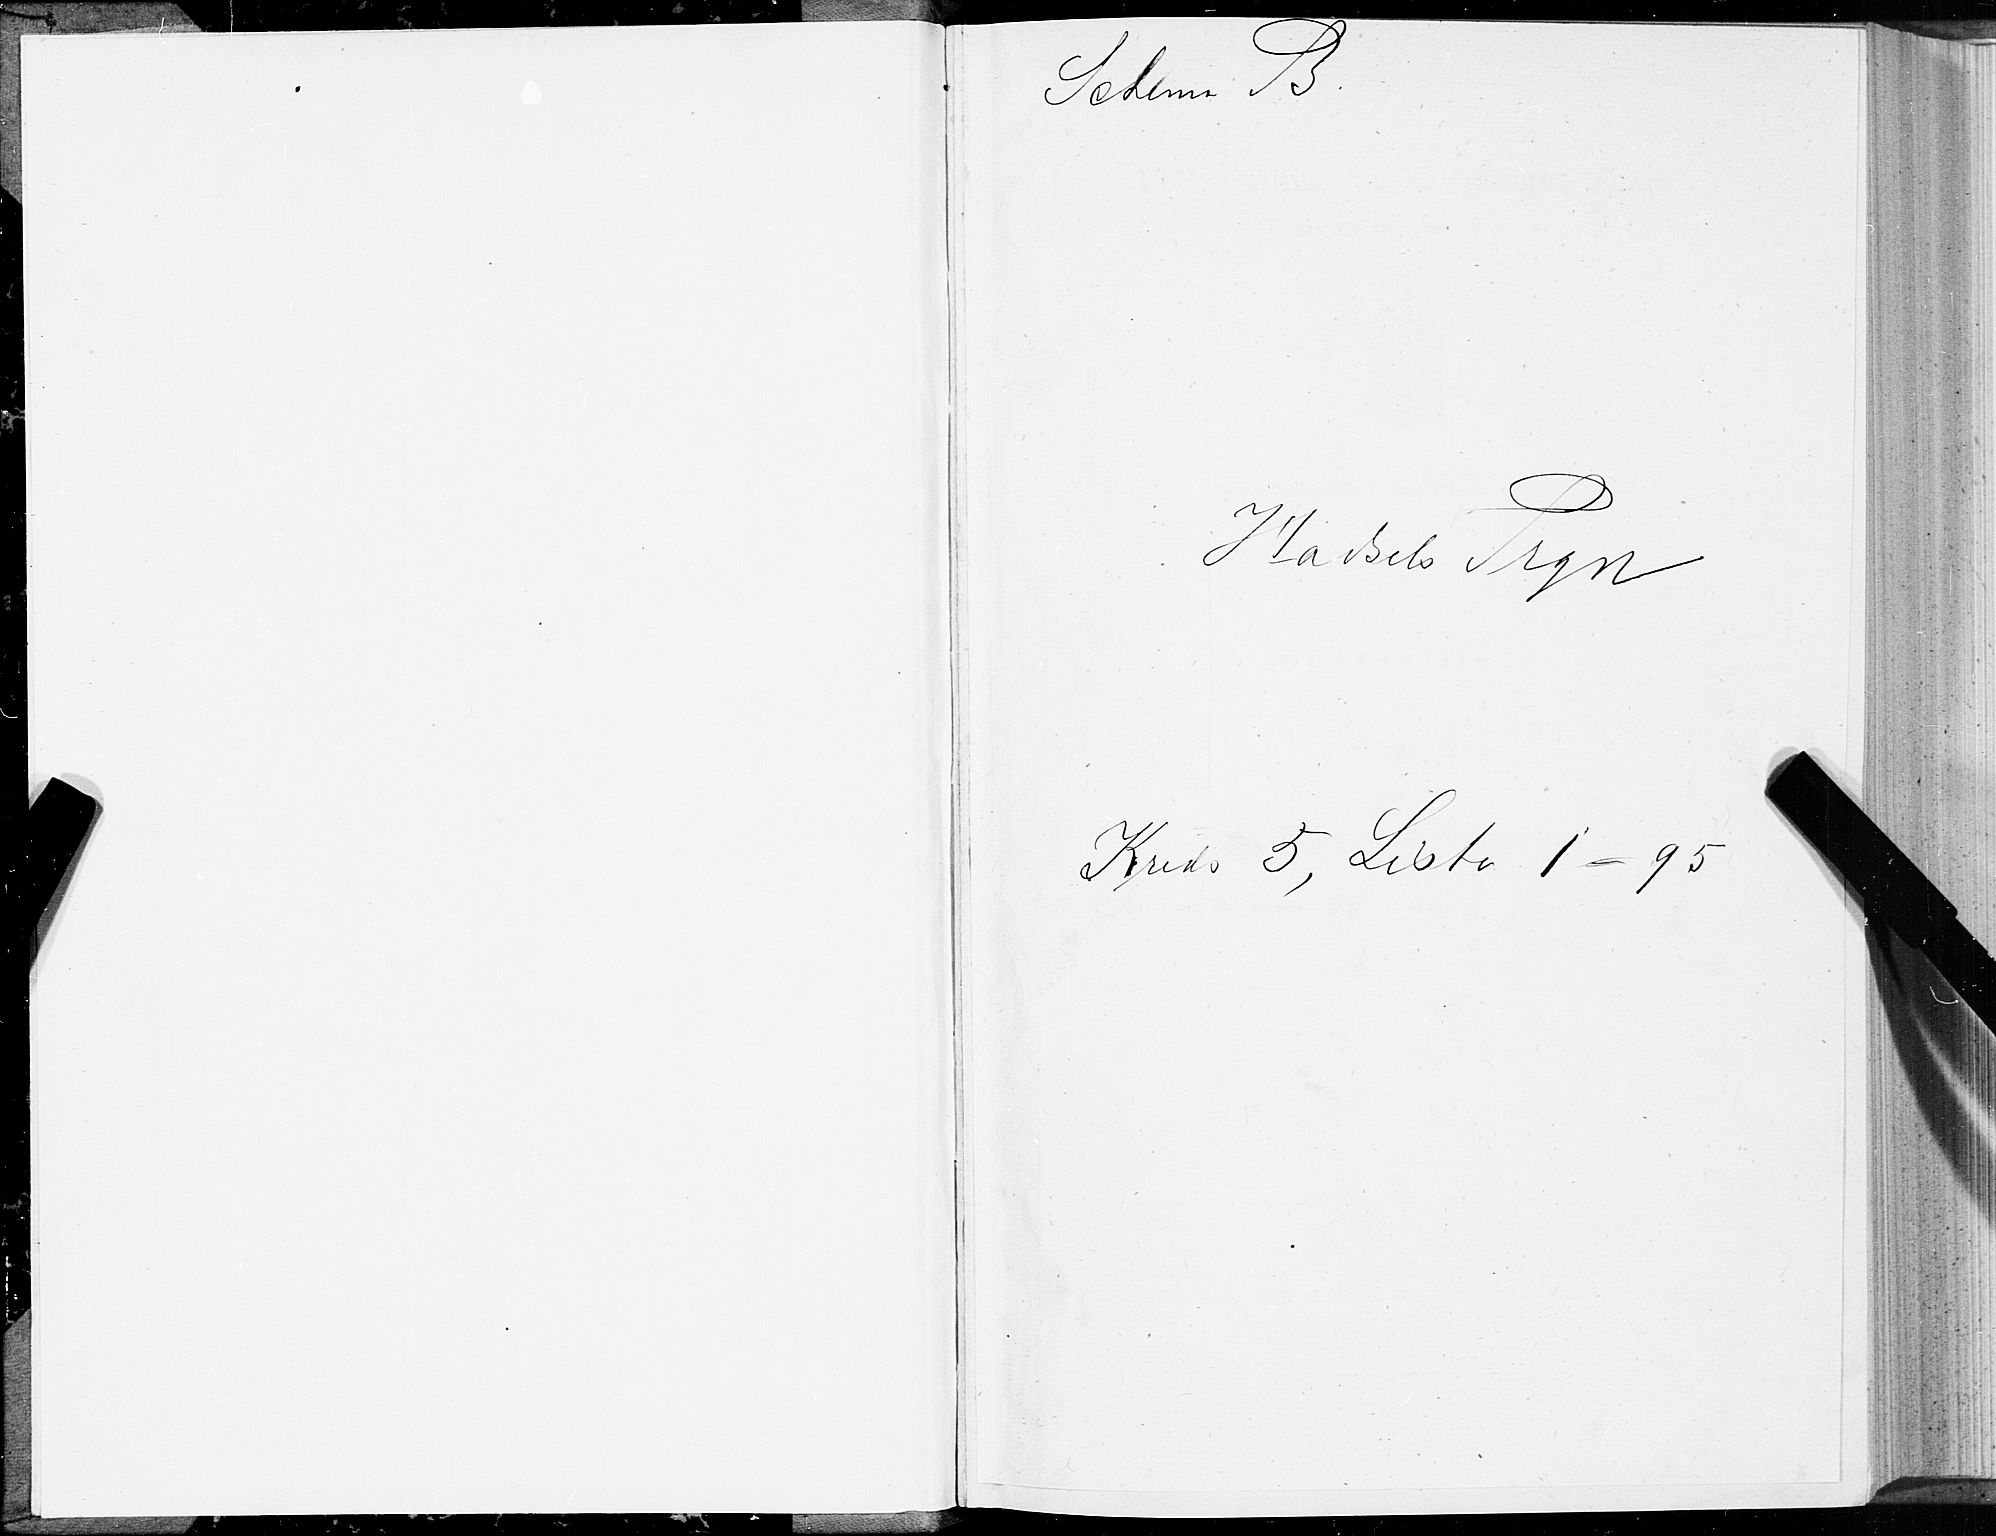 Schema B.
Hadsels Prgn
Kreds 5, Liste 1 - 95